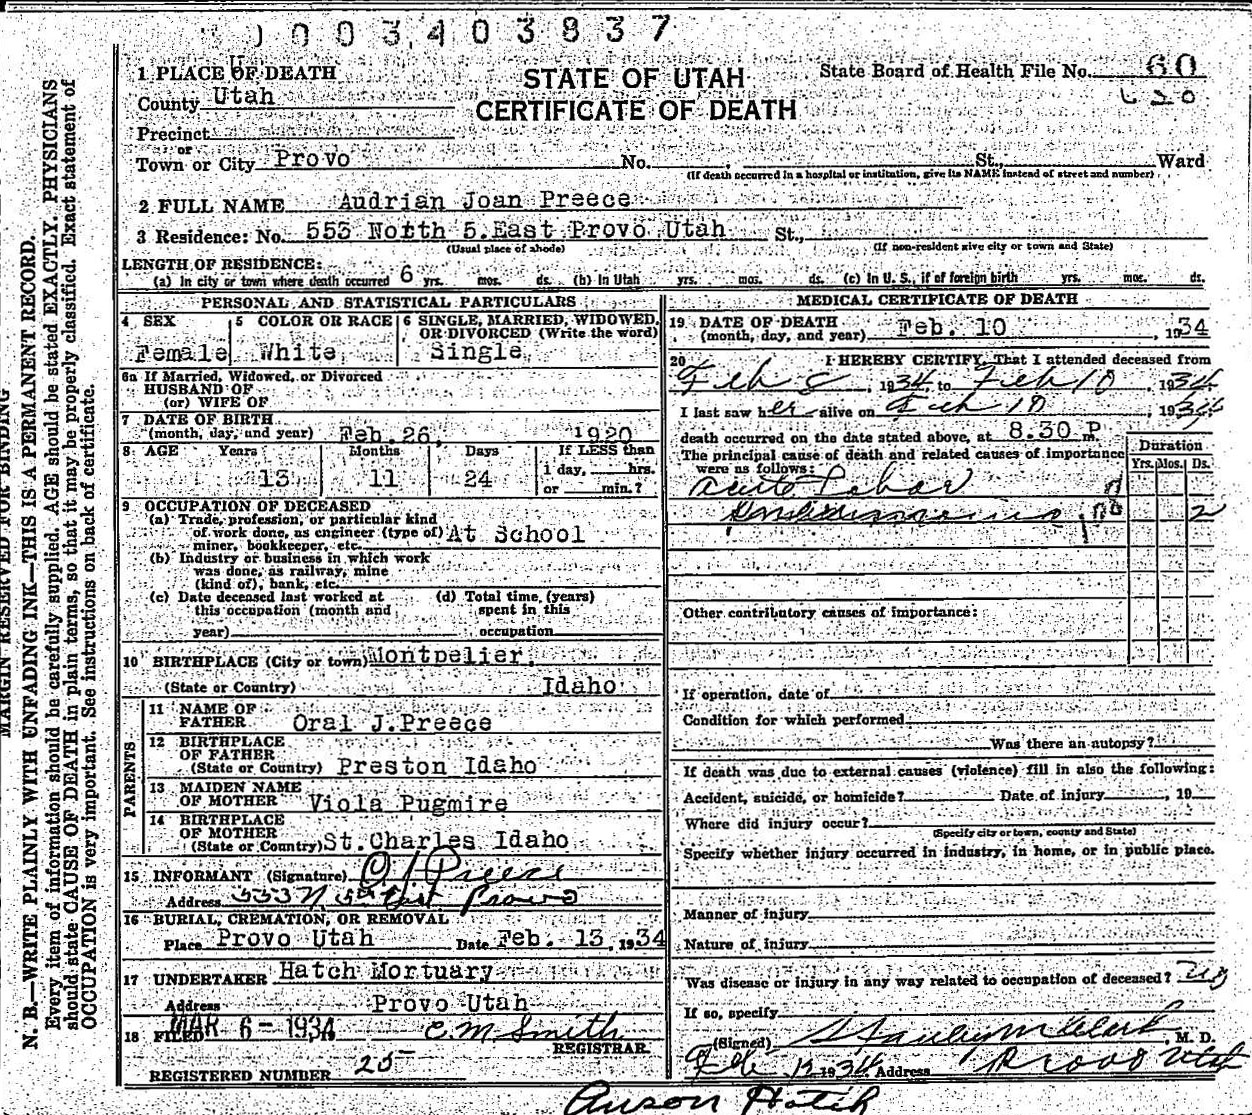 0003403837
1 PLACE OF DEATH
STATE OF UTAH
CERTIFICATE OF DEATH
State Board of Health File No. 60
County Utah
Precinct
or
Town or City Provo No. , St., Ward
(If death occurred in a hospital or institution, give its NAME instead of street and number)
2 FULL NAME Audrian Joan Preece
3 Residence: No. 553 North 5.East Provo Utah St.,
(Usual place of abode) (If non-resident give city or town and State)
LENGTH OF RESIDENCE:
(a) In city or town where death occurred 6 yrs. mos. ds. (b) In Utah yrs. mos. ds. (c) In U. S., if of foreign birth yrs. mos. ds.
PERSONAL AND STATISTICAL PARTICULARS
4 SEX
Female
5 COLOR OR RACE
White
6 SINGLE, MARRIED, WIDOWED,
OR DIVORCED (Write the word)
Single
6a If Married, Widowed, or Divorced
HUSBAND OF
(or) WIFE OF
7 DATE OF BIRTH
(month, day, and year) Feb.26, 1920
8 AGE Years Months Days If LESS than
1 day, hrs.
13 11 24
or min.?
9 OCCUPATION OF DECEASED
(a) Trade, profession, or particular kind
of work done, as engineer (type of) At School
miner, bookkeeper, etc.
(b) Industry or business in which work
was done, as railway, mine
(kind of), bank, etc.
(c) Date deceased last worked at
this occupation (month and
year)
(d) Total time (years)
spent in this
occupation
10 BIRTHPLACE (City or town) Montpelier,
(State or Country) Idaho
PARENTS
11 NAME OF
FATHER Oral J.Preece
12 BIRTHPLACE
OF FATHER
(State or Country) Preston Idaho
13 MAIDEN NAME
OF MOTHER Viola Pugmire
14 BIRTHPLACE
OF MOTHER
(State or Country) St.Charles Idaho
15 INFORMANT (Signature) O J Preece
Address 553 N 5th East Provo
16 BURIAL, CREMATION, OR REMOVAL
Place Provo Utah Date Feb. 13, 1934
17 UNDERTAKER Hatch Mortuary
Address Provo Utah
18 FILED MAR 6 - 1934 C. M Smith
REGISTRAR
REGISTERED NUMBER 25
MEDICAL CERTIFICATE OF DEATH
19 DATE OF DEATH
(month, day, and year) Feb. 10, 1934
20 I HEREBY CERTIFY, That I attended deceased from
Feb 8, 1934, to Feb 10, 1934
I last saw her alive on Feb 10, 1934
death occurred on the date stated above, at 8.30 P m.
The principal cause of death and related causes of importance
were as follows:
Duration
Yrs. Mos. Ds.
Acute Lobar
108
2
Other contributory causes of importance:
If operation, date of
Condition for which performed
Was there an autopsy?
If death was due to external causes (violence) fill in also the following:
Accident, suicide, or homicide? Date of injury , 19
Where did injury occur?
(Specify city or town, county and State)
Specify whether injury occurred in industry, in home, or in public place.
Manner of injury
Nature of injury
Was disease or injury in any way related to occupation of deceased? no
If so, specify
(Signed) Stanley M Clark, M. D.
Feb 12 1934 Address Provo Utah
Anson Hatch
MARGIN RESERVED FOR BINDING
N. B.—WRITE PLAINLY WITH UNFADING INK—THIS IS A PERMANENT RECORD.
Every item of information should be carefully supplied. AGE should be stated EXACTLY. PHYSICIANS
should state CAUSE OF DEATH in plain terms, so that it may be properly classified. Exact statement of
OCCUPATION is very important. See instructions on back of certificate.